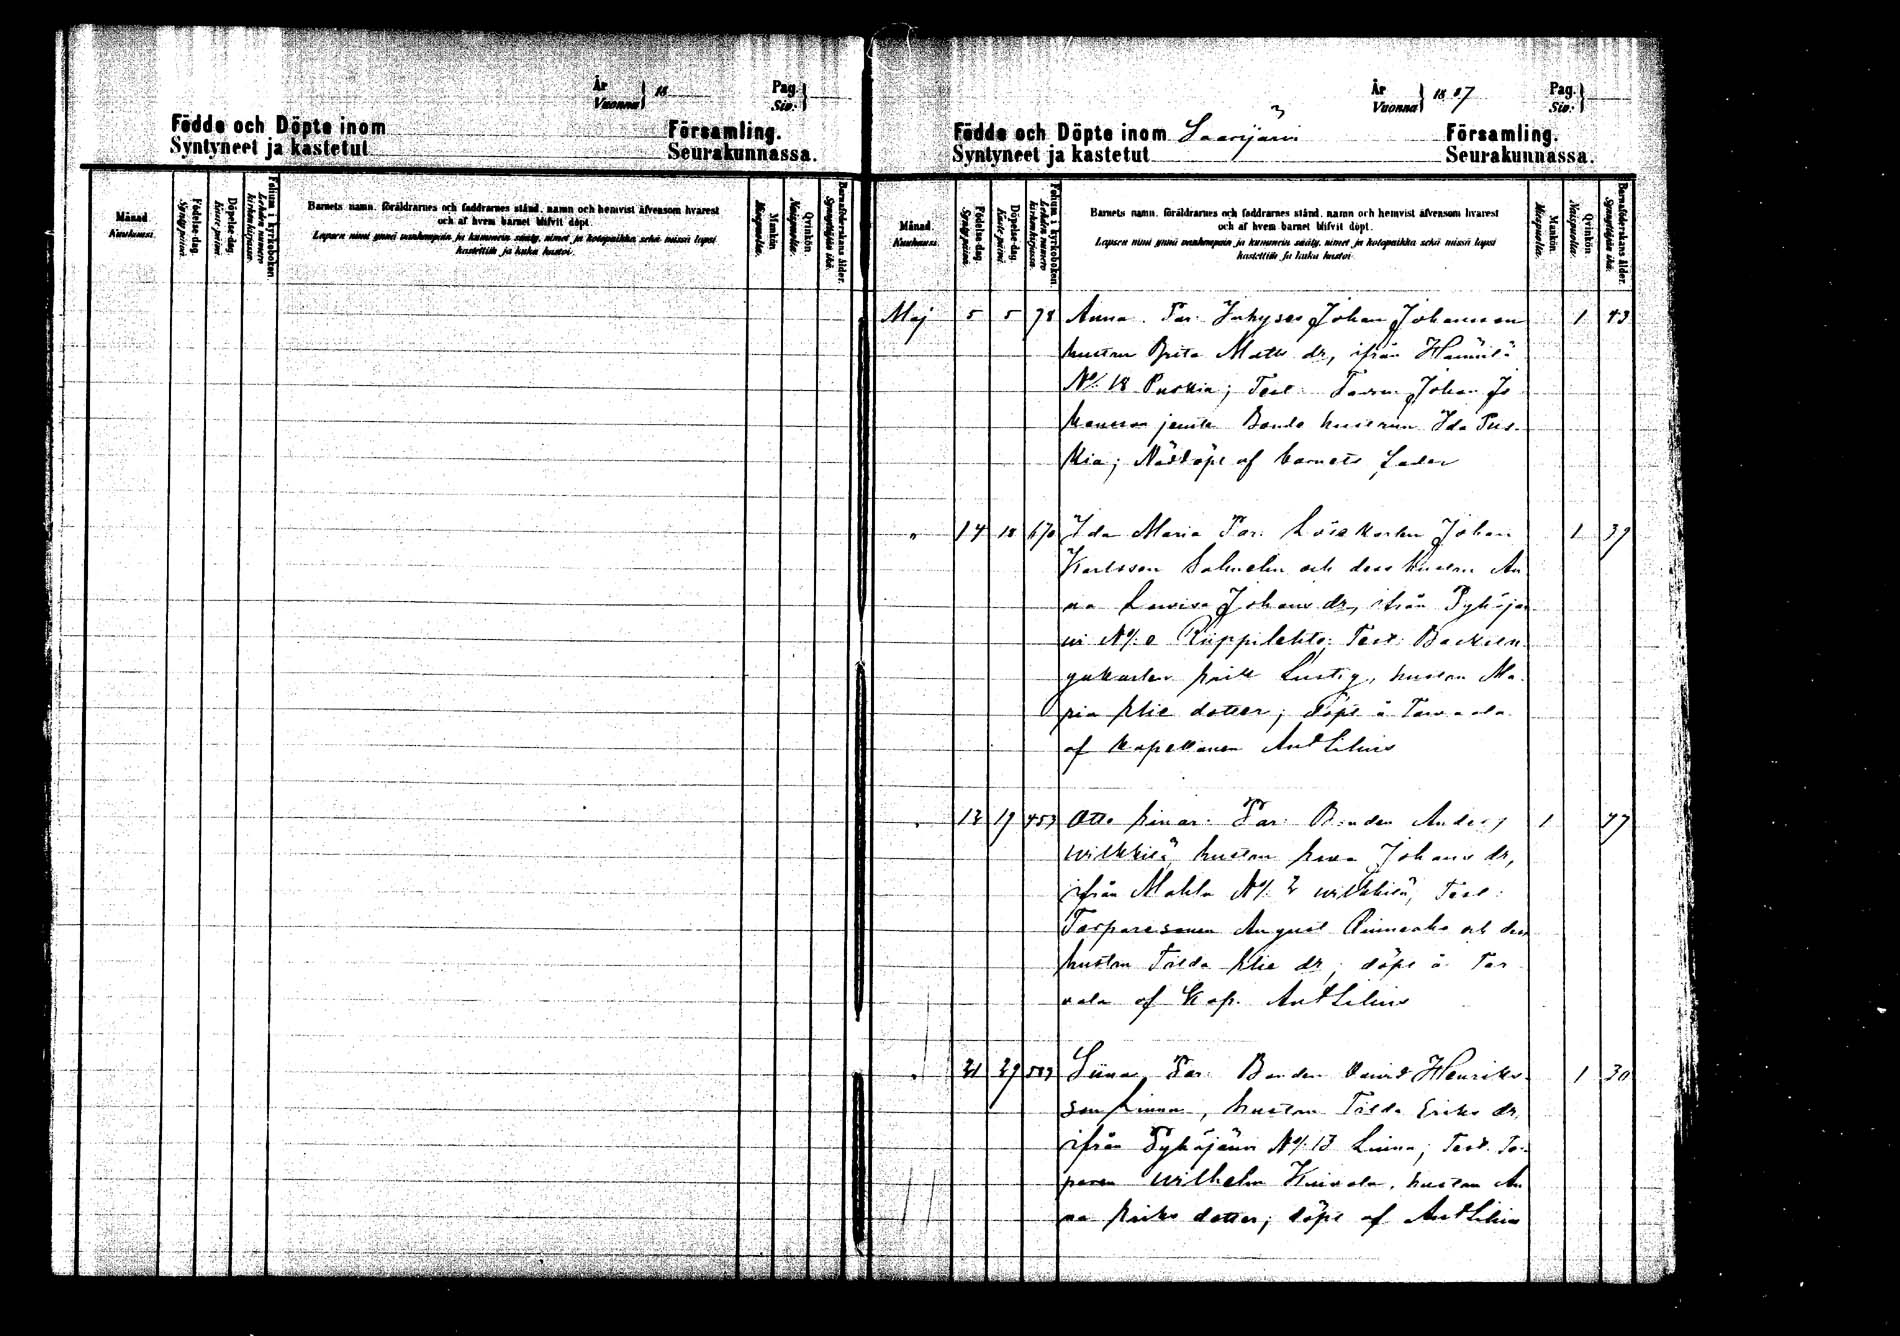 År
Vuonna } 18
Pag.
Siv. }
Födde och Döpte inom
Syntyneet ja kastetut
Församling.
Seurakunnassa.
Månad.
Kuukausi.
Födelse-dag.
Syntypäivä.
Döpelse-dag.
Kaste-päivä.
Folium i kyrkoboken.
Lehden numero kirkonkirjassa.
Barnets namn, föräldrarnes och faddrarnes stånd, namn och hemvist äfvensom hvarest
och af hvem barnet blifvit döpt.
Lapsen nimi ynnä vanhempain ja kummein sääty, nimet ja kotopaikka sekä missä lapsi
kastettiin ja kuka kastoi.
Mankön.
Miespuolia.
Qvinkön.
Naispuolia.
Barnaföderskans ålder.
Synnyttäjän ikä.
År
Vuonna } 1887
Pag.
Siv. }
Födde och Döpte inom Saarijärvi
Syntyneet ja kastetut
Församling.
Seurakunnassa.
Månad.
Kuukausi.
Födelse-dag.
Syntypäivä.
Döpelse-dag.
Kaste-päivä.
Folium i kyrkoboken.
Lehden numero kirkonkirjassa.
Barnets namn, föräldrarnes och faddrarnes stånd, namn och hemvist äfvensom hvarest
och af hvem barnet blifvit döpt.
Lapsen nimi ynnä vanhempain ja kummein sääty, nimet ja kotopaikka sekä missä lapsi
kastettiin ja kuka kastoi.
Mankön.
Miespuolia.
Qvinkön.
Naispuolia.
Barnaföderskans ålder.
Synnyttäjän ikä.
Maj 5 5 78 Anna. Par: Inhyses Johan Johansson 1 43
hustrun Brita Matts dr, ifrån
No 18 Puskia; Test: Johan Jo
hansson jemte Bonde hustrun Ida Pus-
kia; Nöddöpt af barnets fader
" 14 18 670 Ida Maria Par: Löskarlen Johan 1 39
Karlsson Salmelin och dess hustru An
na Lovisa Johans dr, ifrån Pyhäjär
vi No: 2 Test: Backstu
gukarlen Erik Lustig, hustrun Ma-
ria Elie dotter; döpt å Tarvaala
af kapellanen Ant Lilius
" 12 19 453 Otto Einar. Par: Bonden Anders 1 47
Wilkkilä, hustrun Eva Johans dr,
ifrån Mahlu No: 2 Wilkkilä, Test:
Torparesonen August och dess
hustru Tilda Elie dr; döpt å Tar
vala af Kap. Ant Lilius
" 21 29 Siina, Par: Bonden David Henriks- 1 30
son Linna, hustrun Tilda Eriks dr,
ifrån Pyhäjärvi No: 13 Linna; Test: Tor
paren Wilhelm hustrun An
na Eriks dotter; döpt af Ant Lilius